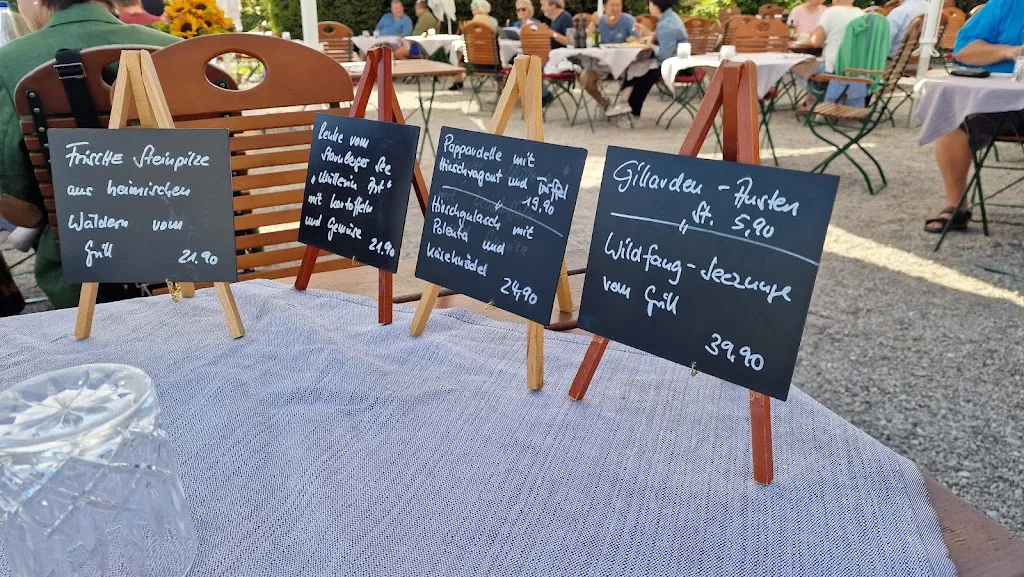 Frische Steinpilze
aus heimischen
Wäldern vom
Grill 21,90
Renke vom
Starnberger See
„Müllerin Art"
mit Kartoffeln
und Gemüse 21,90
Pappardelle mit
Hirschragout und Trüffel
19,90
Hirschgulasch mit
Polenta und
Käseknödel
24,90
Gillardeau - Austern
„St. 5,90
Wildfang - Seezunge
vom Grill
39,90